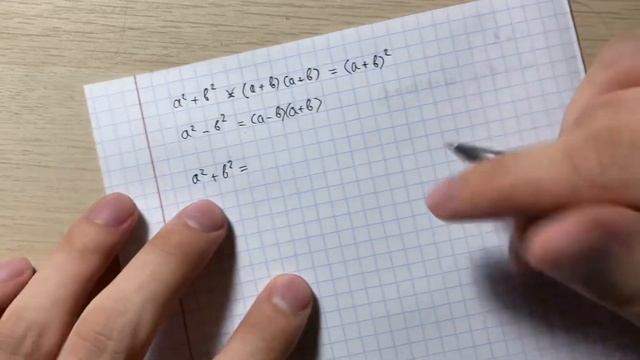 a² + b² ≠ (a+b)(a+b) = (a+b)²
a² - b² = (a-b)(a+b)
a² + b² =